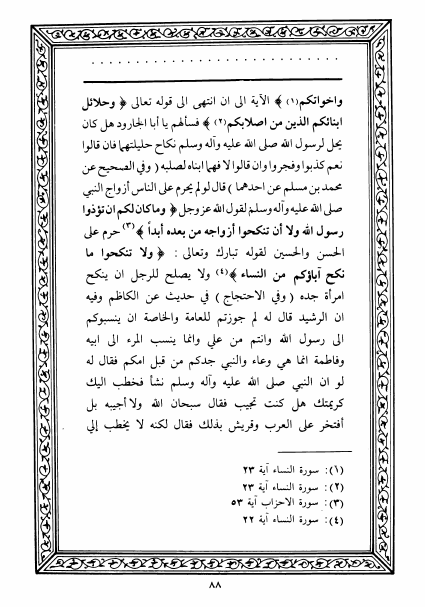 واخواتكم(١) ﴾ الآية الى ان انتهى الى قوله تعالى ﴿ وحلائل
ابنائكم الذين من اصلابكم(٢) ﴾ فسألهم يا أبا الجارود هل كان
يحل لرسول الله صلى الله عليه وآله وسلم نكاح حليلتهما فان قالوا
نعم كذبوا وفجروا وان قالوا لا فهما ابناه لصلبه ( وفي الصحيح عن
محمد بن مسلم عن احدهما ) قال لو لم يحرم على الناس أزواج النبي
صلى الله عليه وآله وسلم لقول الله عزوجل ﴿ وما كان لكم ان تؤذوا
رسول الله ولا أن تنكحوا أزواجه من بعده أبداً ﴾(٣) حرم على
الحسن والحسين لقوله تبارك وتعالى : ﴿ ولا تنكحوا ما
نكح آباؤكم من النساء ﴾(٤) ولا يصلح للرجل ان ينكح
امرأة جده ( وفي الاحتجاج ) في حديث عن الكاظم وفيه
ان الرشيد قال له لم جوزتم للعامة والخاصة ان ينسبوكم
الى رسول الله وانتم من علي وانما ينسب المرء الى ابيه
وفاطمة انما هي وعاء والنبي جدكم من قبل امكم فقال له
لو ان النبي صلى الله عليه وآله وسلم نشأ فخطب اليك
كريمتك هل كنت تجيب فقال سبحان الله ولا أجيبه بل
أفتخر على العرب وقريش بذلك فقال لكنه لا يخطب إلي
(١): سورة النساء آية ٢٣
(٢): سورة النساء آية ٢٣
(٣): سورة الاحزاب آية ٥٣
(٤): سورة النساء آية ٢٢
٨٨